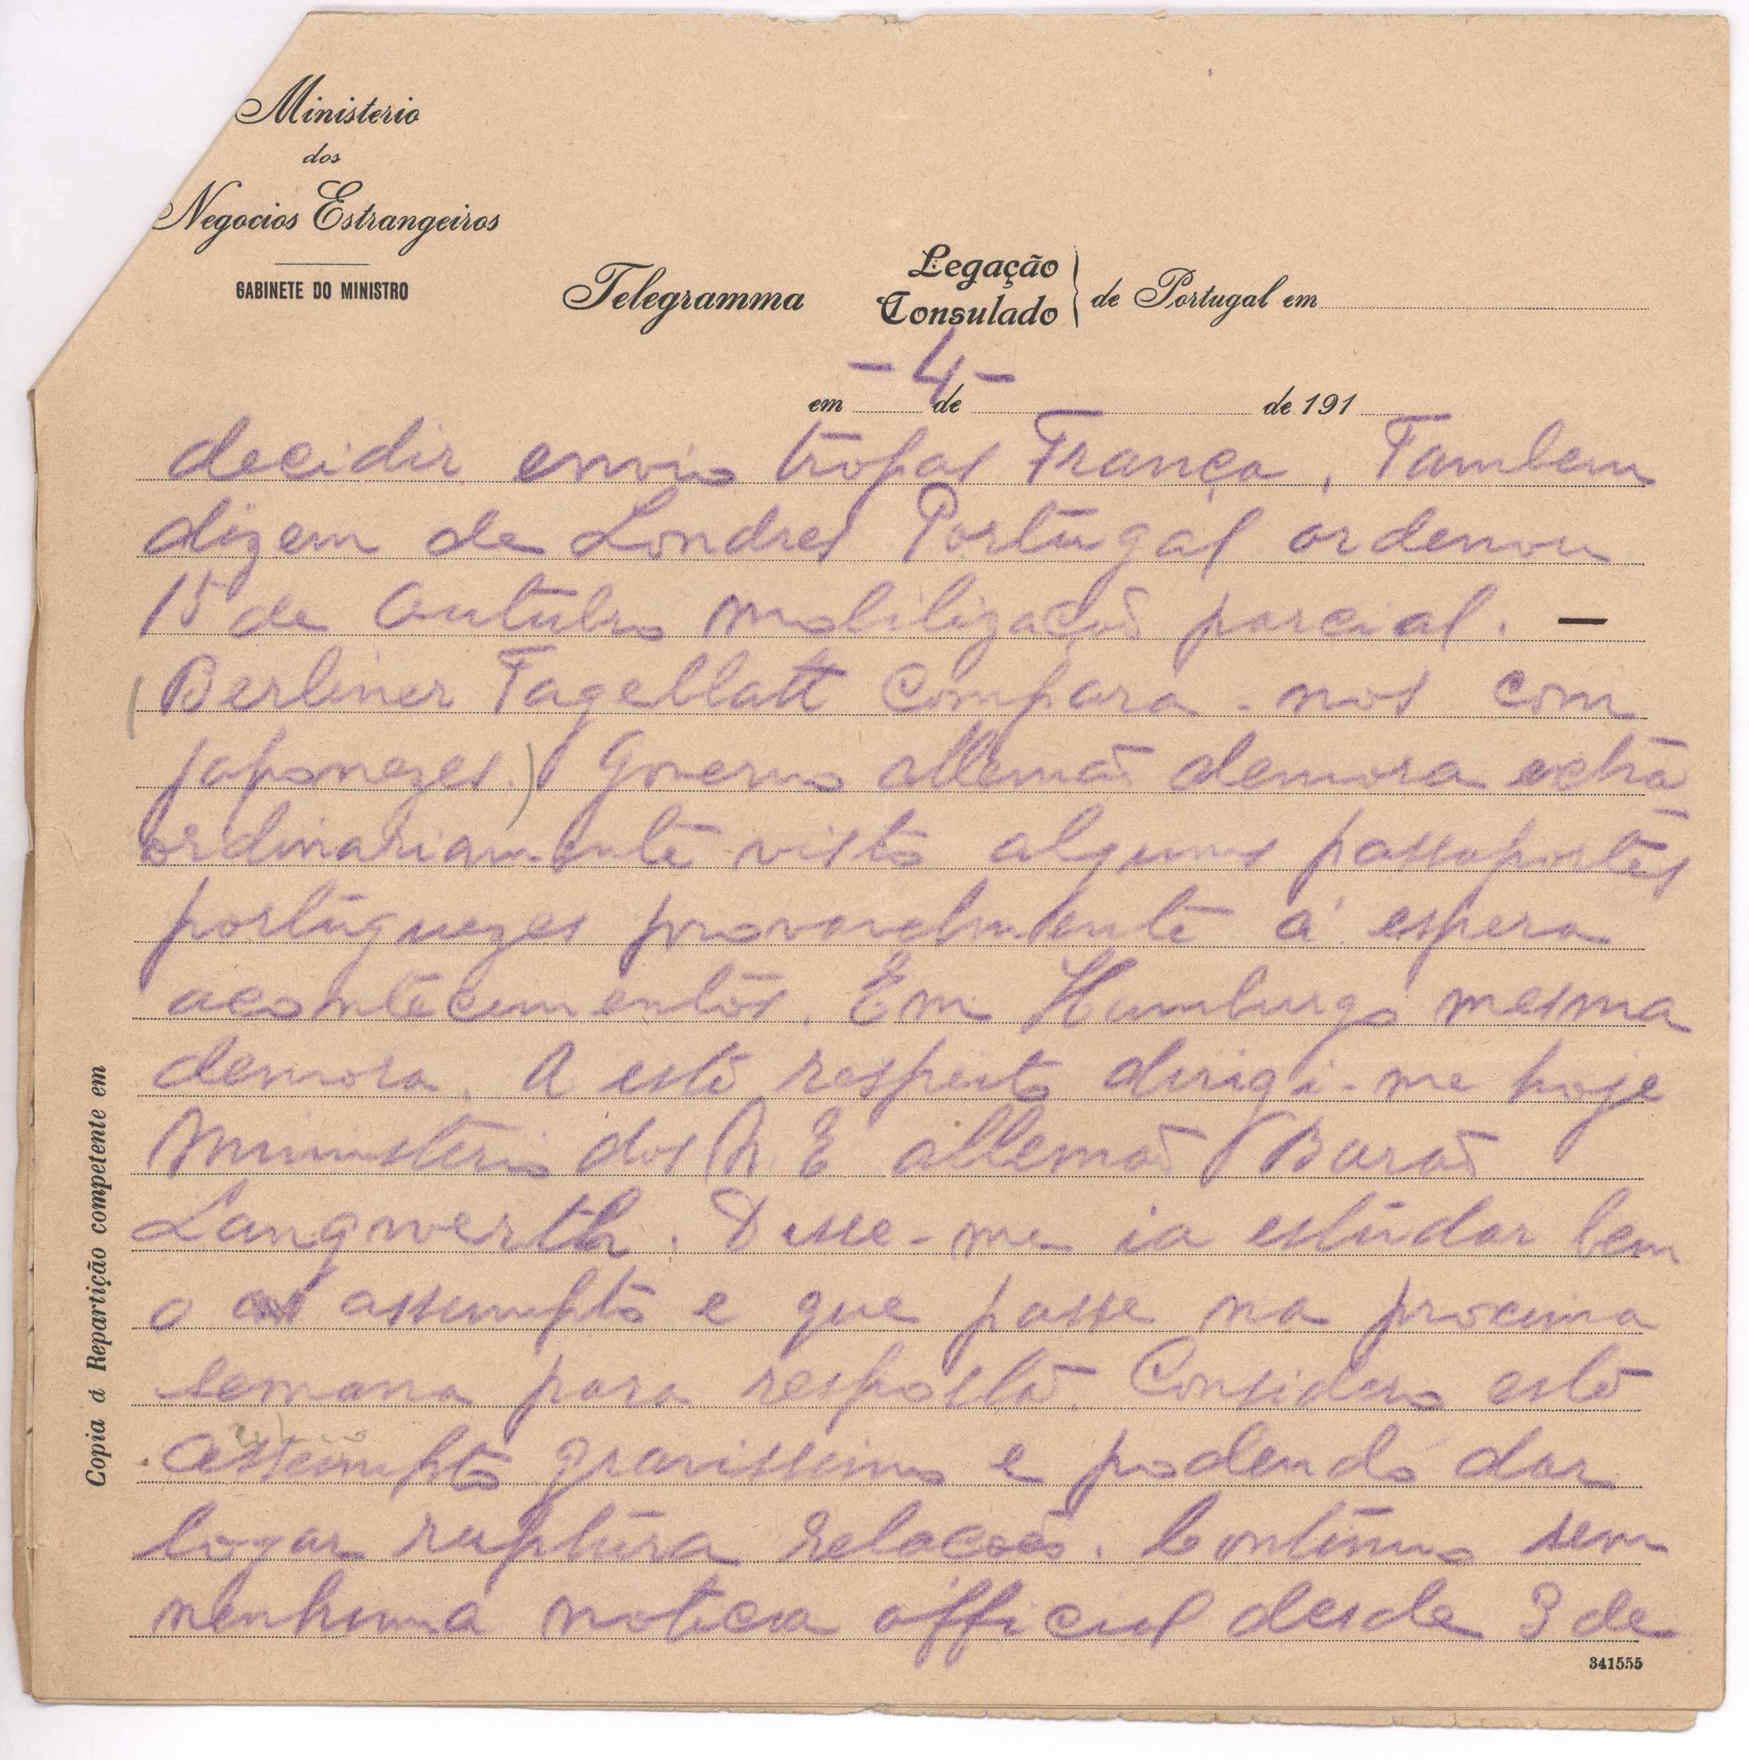 Ministerio
dos
Negocios Estrangeiros
GABINETE DO MINISTRO
Telegramma
Legação
Consulado
de Portugal em
- 4 -
em de de 191
decidir envio tropas França, Tambem
dizem de Londres Portugal ordenou
15 de Outubro mobilização parcial. —
(Berliner Tageblatt compara-nos com
japonezes.) Governo allemão demora extra
ordinariamente visto alguns passaportes
portuguezes provavelmente á espera
acontecimentos. Em Hamburgo mesma
demora. A este respeito dirigi-me hoje
Ministerio dos N. E allemão Barão
Langwerth. Disse-me ia estudar bem
o assumpto e que passe na proxima
semana para resposta. Considero este
assumpto gravissimo e podendo dar
logar ruptura relacões. Continuo sem
nenhuma noticia official desde 3 de
Copia á Repartição competente em
341555